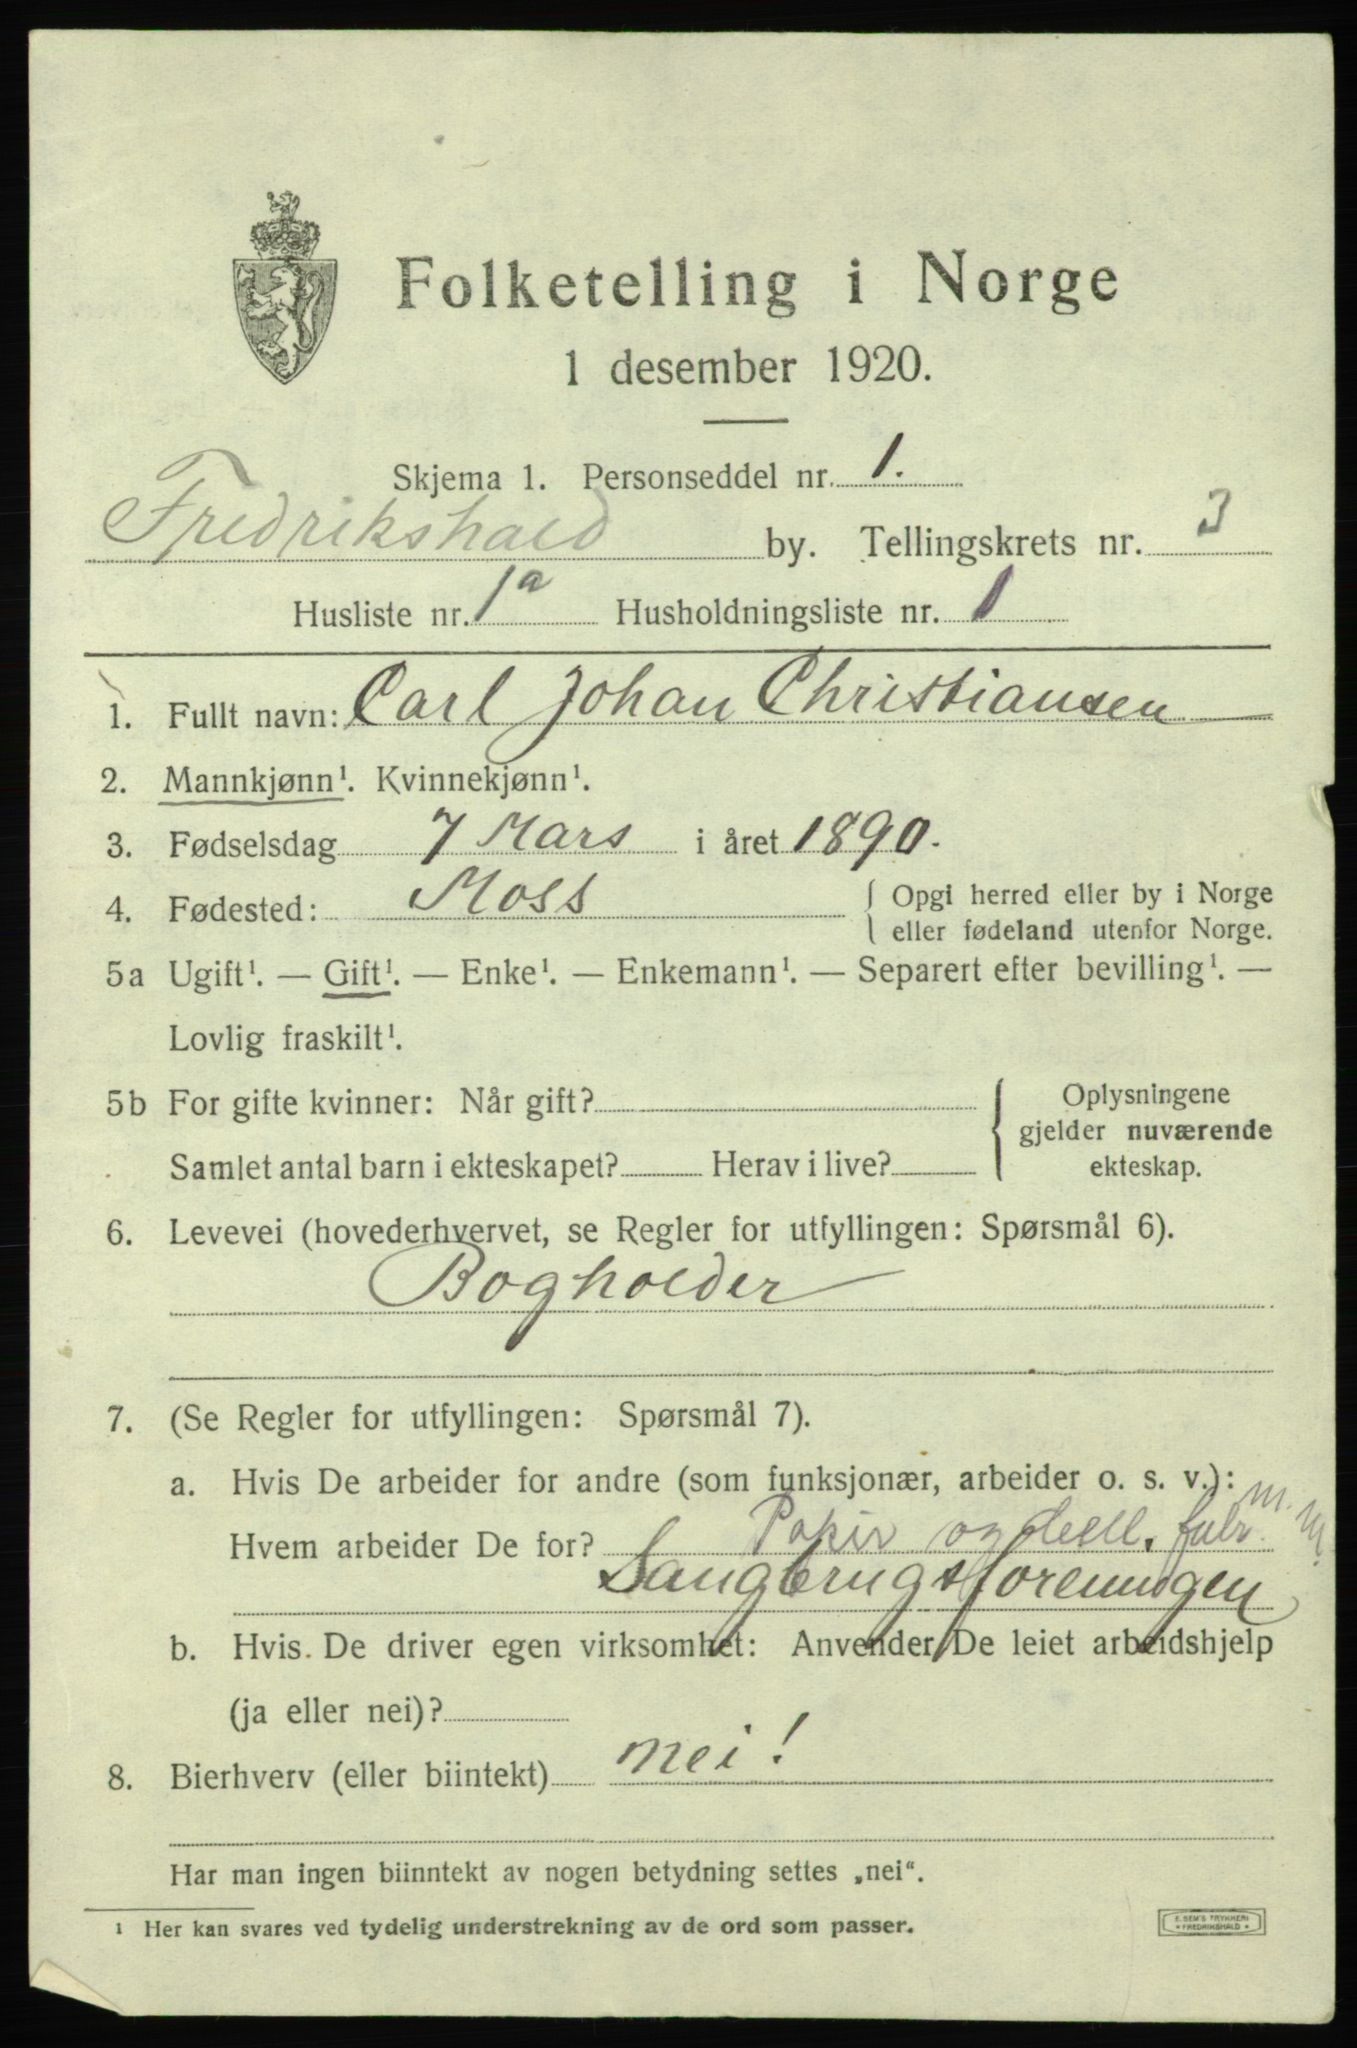 Folketelling i Norge
1 desember 1920.
Skjema 1. Personseddel nr. 1.
Fredrikshald by. Tellingskrets nr. 3
Husliste nr. 1a Husholdningsliste nr. 1
1. Fullt navn: Carl Johan Christiansen
2. Mannkjønn¹. Kvinnekjønn¹.
3. Fødselsdag 7 Mars i året 1890.
4. Fødested: Moss { Opgi herred eller by i Norge
eller fødeland utenfor Norge.
5a Ugift¹. — Gift¹. — Enke¹. — Enkemann¹. — Separert efter bevilling¹. —
Lovlig fraskilt¹.
5b For gifte kvinner: Når gift?
Samlet antal barn i ekteskapet? Herav i live?
Oplysningene
gjelder nuværende
ekteskap.
6. Levevei (hovederhvervet, se Regler for utfyllingen: Spørsmål 6).
Bogholder
7. (Se Regler for utfyllingen: Spørsmål 7).
a. Hvis De arbeider for andre (som funksjonær, arbeider o. s. v.):
Hvem arbeider De for? Papir og cell. fabr. m. m.
Saugbrugsforeningen
b. Hvis De driver egen virksomhet: Anvender De leiet arbeidshjelp
(ja eller nei)?
8. Bierhverv (eller biintekt) nei!
Har man ingen biinntekt av nogen betydning settes „nei“.
¹ Her kan svares ved tydelig understrekning av de ord som passer.
E. SEM'S TRYKKERI
FREDRIKSHALD